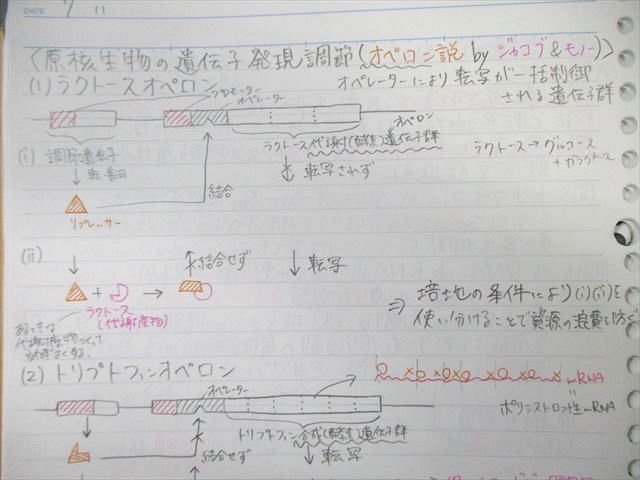 DATE 7.11
〈原核生物の遺伝子発現調節(オペロン説 by ジャコブ&モノー)〉
(1) ラクトースオペロン
オペレーターにより転写が一括制御
される遺伝子群
プロモーター
オペレーター
オペロン
(i) 調節遺伝子
ラクトース代謝(酵素)遺伝子群
ラクトース→グルコース
+ガラクトース
転・翻
転写されず
結合
リプレッサー
(ii)
結合せず
転写
+
ラクトース
(代謝産物)
⇒ 培地の条件により(i)(ii)を
使い分けることで資源の浪費を防ぐ
代謝産物
(2) トリプトファンオペロン
オペレーター
mRNA
トリプトファン合成(酵素)遺伝子群
ポリシストロン性mRNA
結合せず
転写